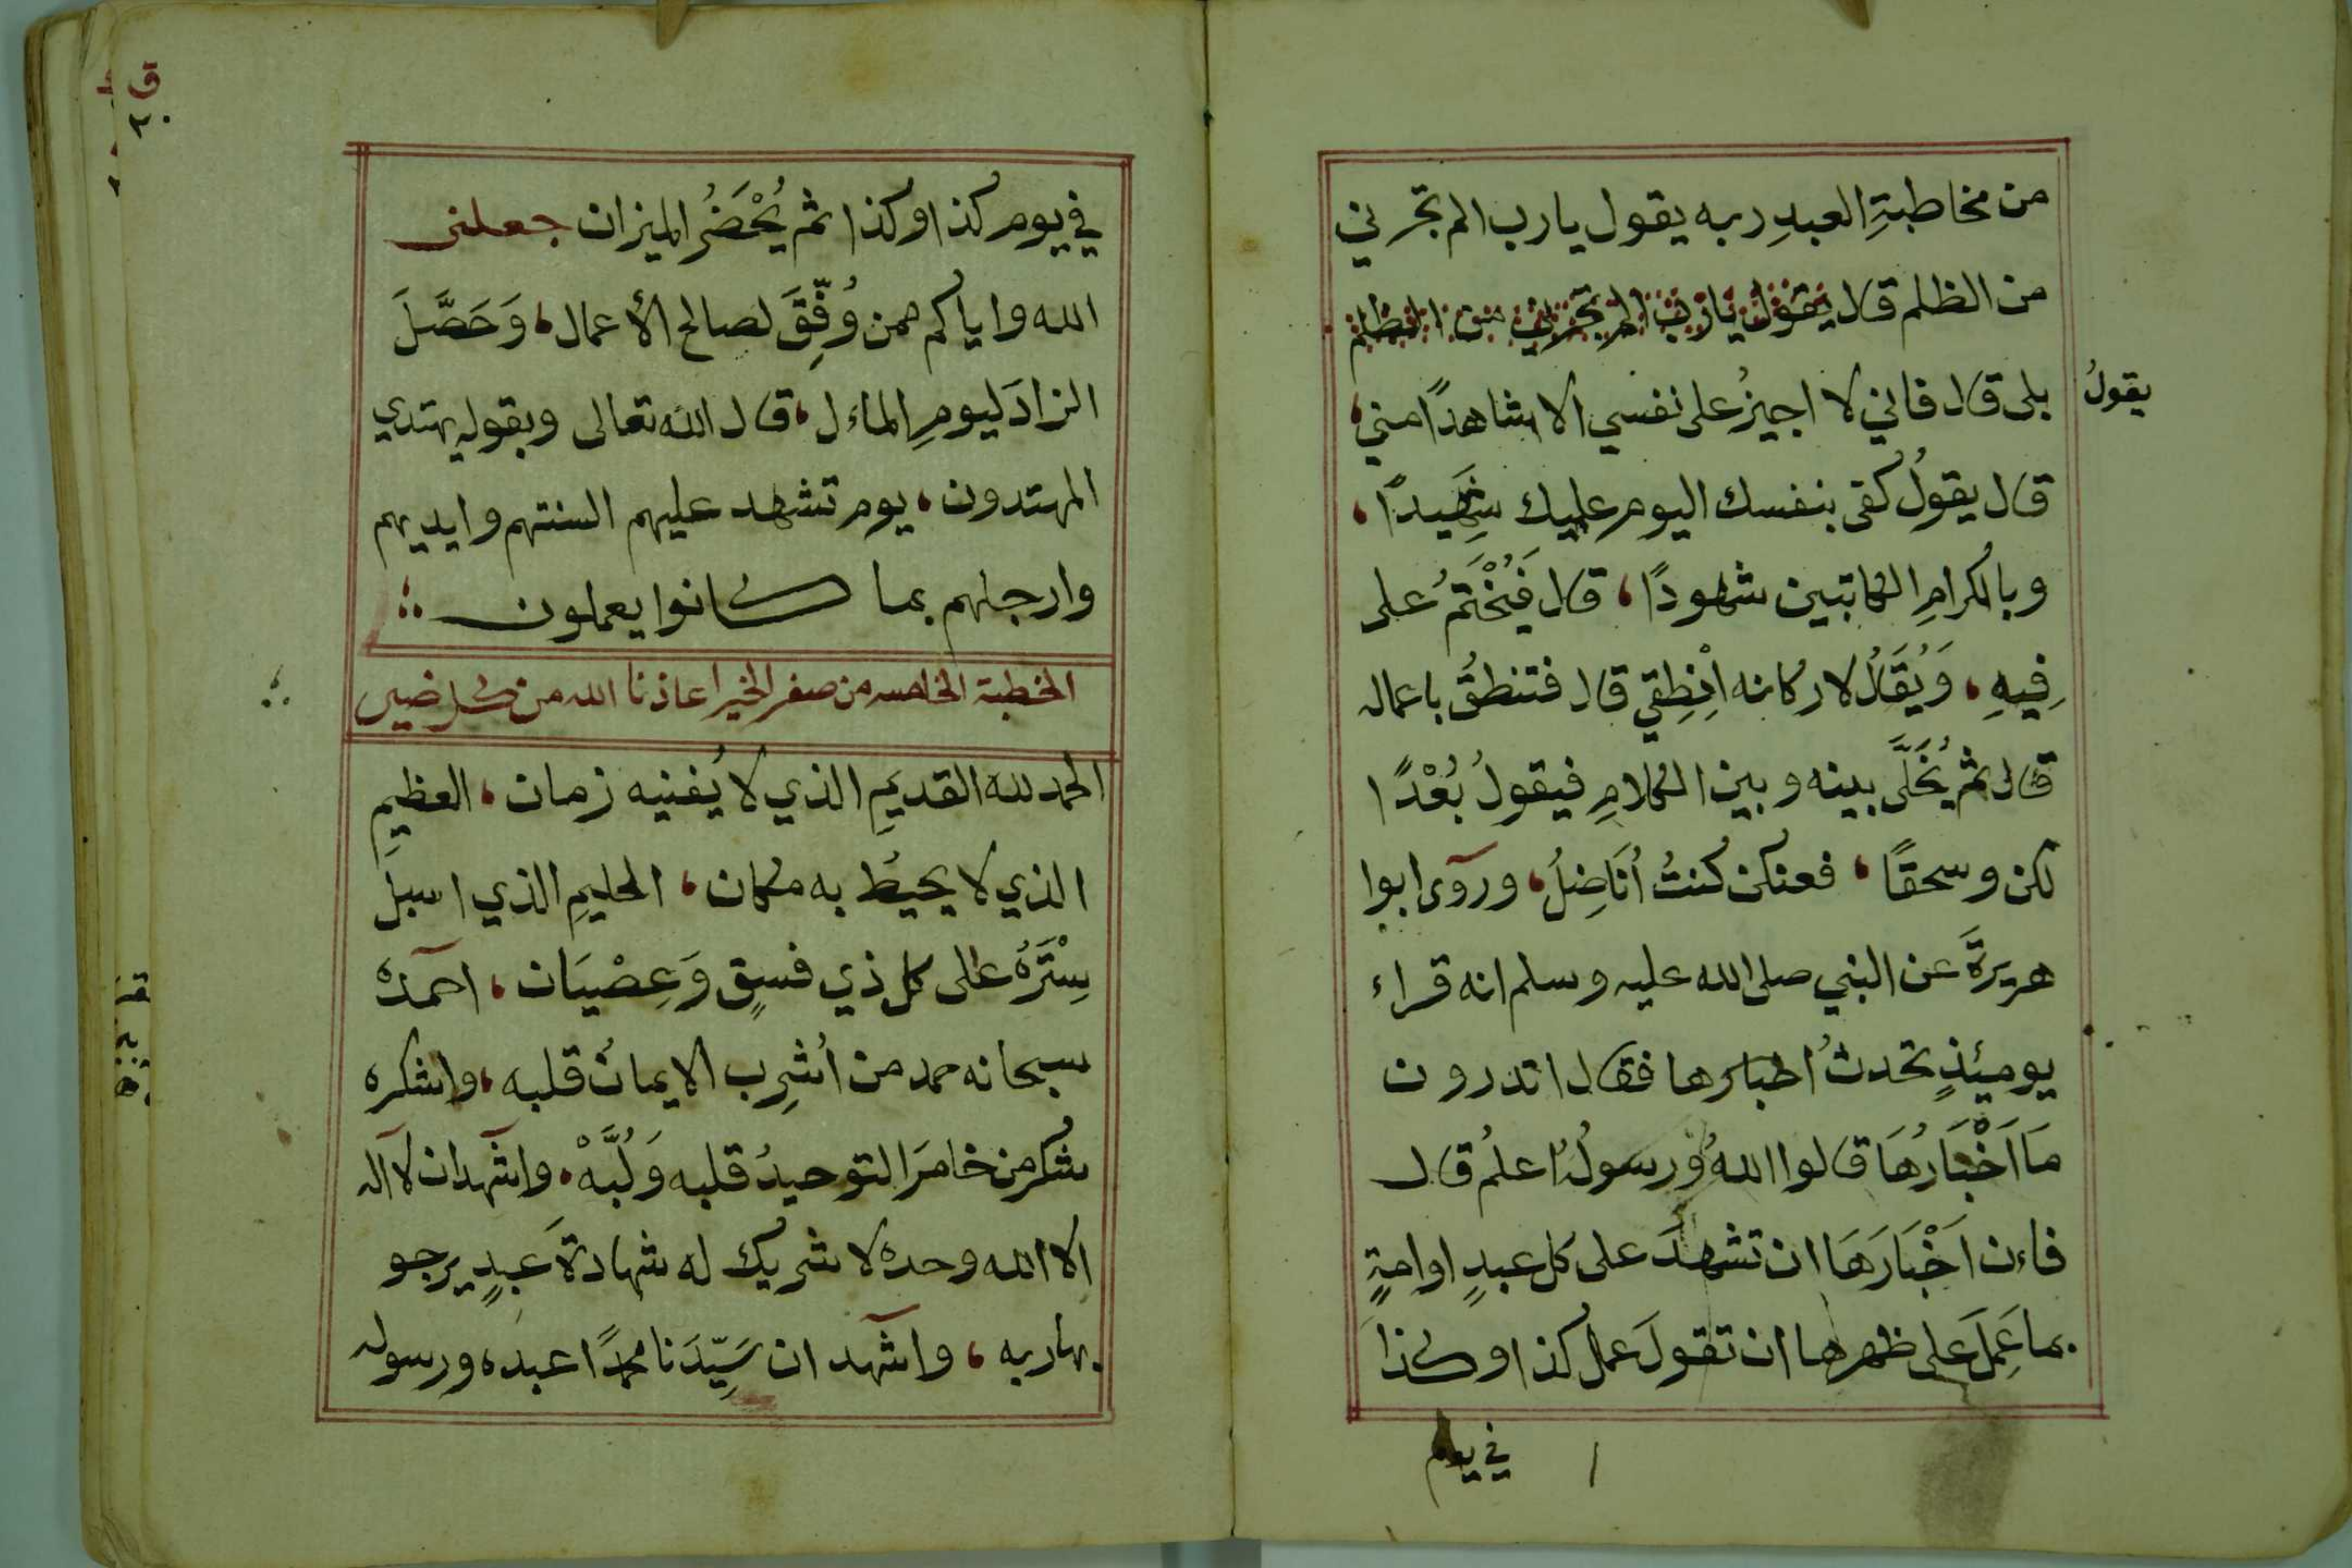 من مخاطبةِ العبدِ ربه يقول يارب الم تجرني
من الظلم قال يقول يارب الم تجرني من الظلم
يقولُ
بلى قال فاني لا اجيزُ على نفسي الا شاهدًا مني،
قال يقولُ كفى بنفسك اليوم عليك شهِيدًا،
وبالكرامِ الكاتبين شهودًا، قال فَيُخْتَمُ على
فِيهِ، وَيُقَالُ لاركانه انْطِقِي قال فتنطقُ باعماله
قال ثم يُخَلَّى بينه وبين الكلامِ فيقولُ بُعْدًا
لكن وسحقًا، فعنكن كنتُ اُنَاضِلُ، وروى ابوا
هريرةَ عن النبي صلى الله عليه وسلم انه قراء
يومئذٍ تحدثُ اخبارها فقال اتدرون
مَا اَخْبَارُهَا قالوا اللهُ ورسولُهُ اعلمُ قال
فاءن اَخْبَارَهَا ان تشهدَ على كل عبدٍ اوامةٍ
بما عَمِلَ على ظهرها ان تقولَ عمل كذا وكذا
في يوم
في يوم كذا وكذا ثم يُحْضَرُ الميزان جعلنى
الله واياكم ممن وُفِّقَ لصالح الأعمال، وَحَصَّلَ
الزادَ ليومِ الماءل، قال الله تعالى وبقوله يهتدي
المهتدون، يوم تشهد عليهم السنتهم وايديهم
وارجلهم بما كانوا يعملون
الخطبة الخامسه من صفر الخير اعاذنا الله من كل ضير
الحمد لله القديمِ الذي لا يُفنيه زمان، العظيمِ
الذي لا يحيطُ به مكان، الحليمِ الذي اسبلَ
سِتْرَهُ على كل ذي فسقٍ وَعِصْيَان، احمده
سبحانه حمد من اُشرِب الايمانُ قلبه، واشكره
شكر من خامرَ التوحيدُ قلبه وَلُبَّهْ، واشهد ان لا اله
الا الله وحده لا شريك له شهادةَ عبدٍ يرجو
بها ربه، واشهد ان سَيِّدَنا محمدًا عبده ورسوله